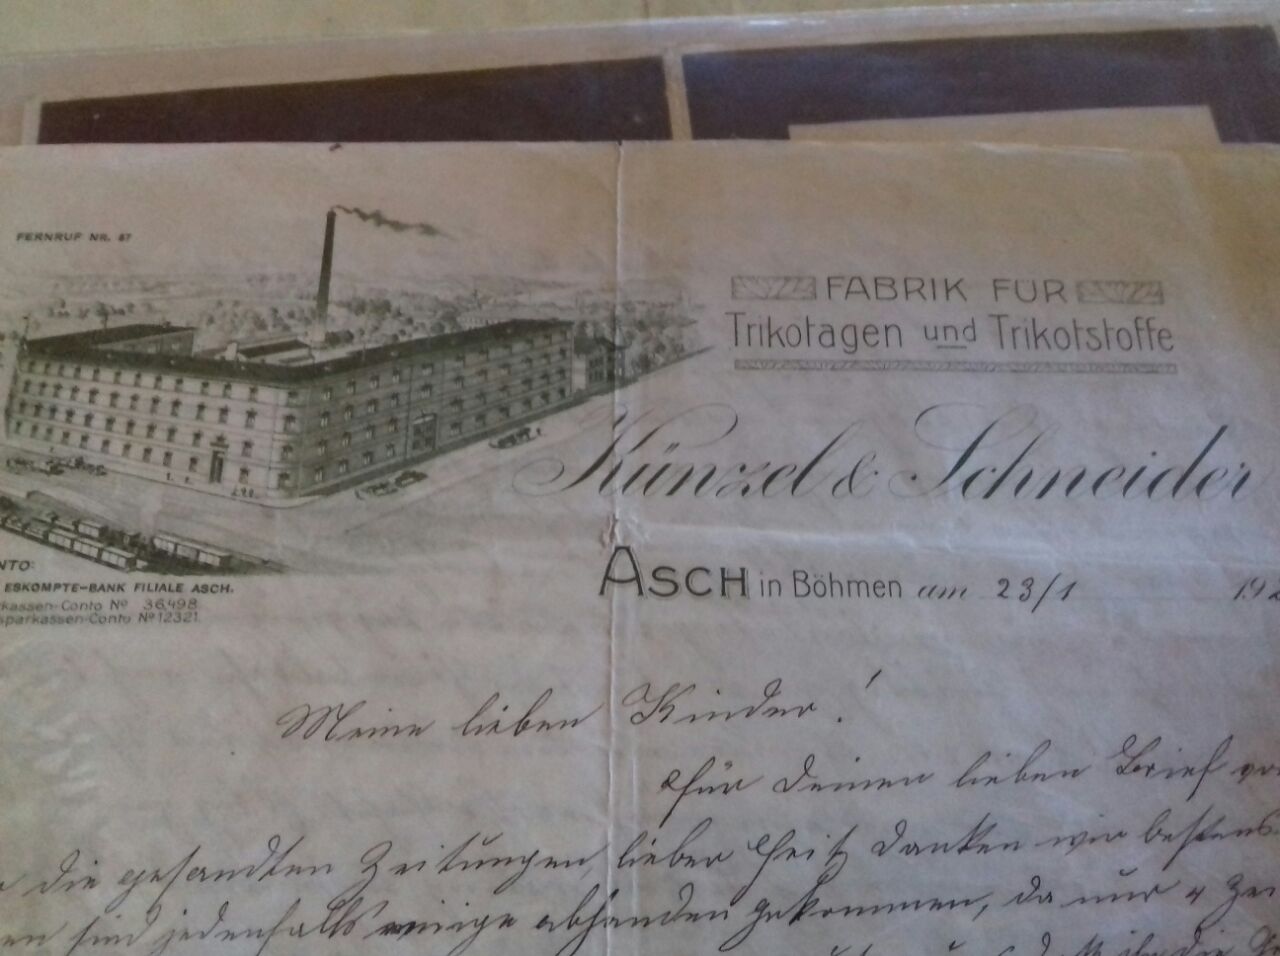 FERNRUF NR. 67
FABRIK FÜR
Trikotagen und Trikotstoffe
Künzel & Schneider
NTO:
ESKOMPTE-BANK FILIALE ASCH.
kassen-Conto No 36,498
sparkassen-Conto No 12321
ASCH in Böhmen am 23/1 192
Meine lieben Kinder!
Für Deinen lieben Brief
die gesandten Zeitungen, lieber Fritz danken wir bestens
en sind jedenfalls einige abhanden gekommen, da nur 4 Zei